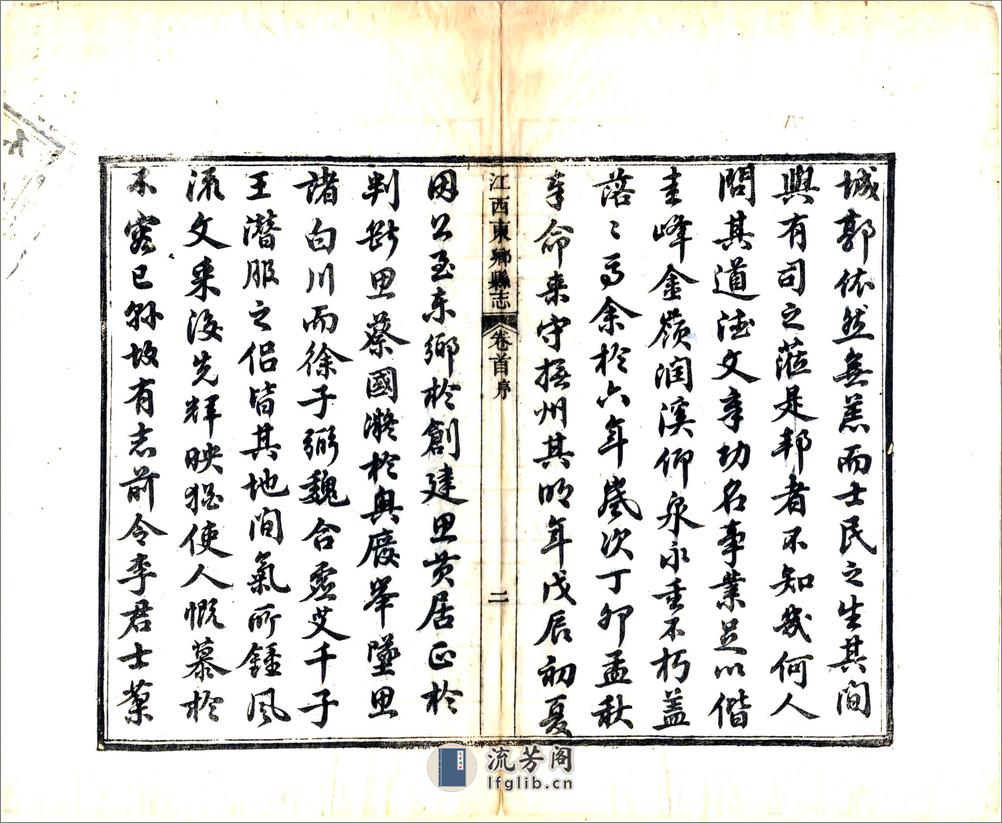 城郭依然無羔而士民之生其間
與有司之蒞是邦者不知幾何人
問其道德文章功名事業足以偕
圭峰金嶺潤溪仰泉永垂不朽蓋
落〻焉余於六年歲次丁卯孟秋
奉命來守撫州其明年戊辰初夏
因公至東鄉於創建思黃居正於
判斷思蔡國瀅於興廢舉墜思
諸白川而徐子弼魏合虛艾千子
王潛服之侶皆其地間氣所鍾風
流文采後先輝映猶使人慨慕於
不窮已縣故有志前令李君士
江西東鄉縣志
卷首序
二
流芳阁
lfglib.cn